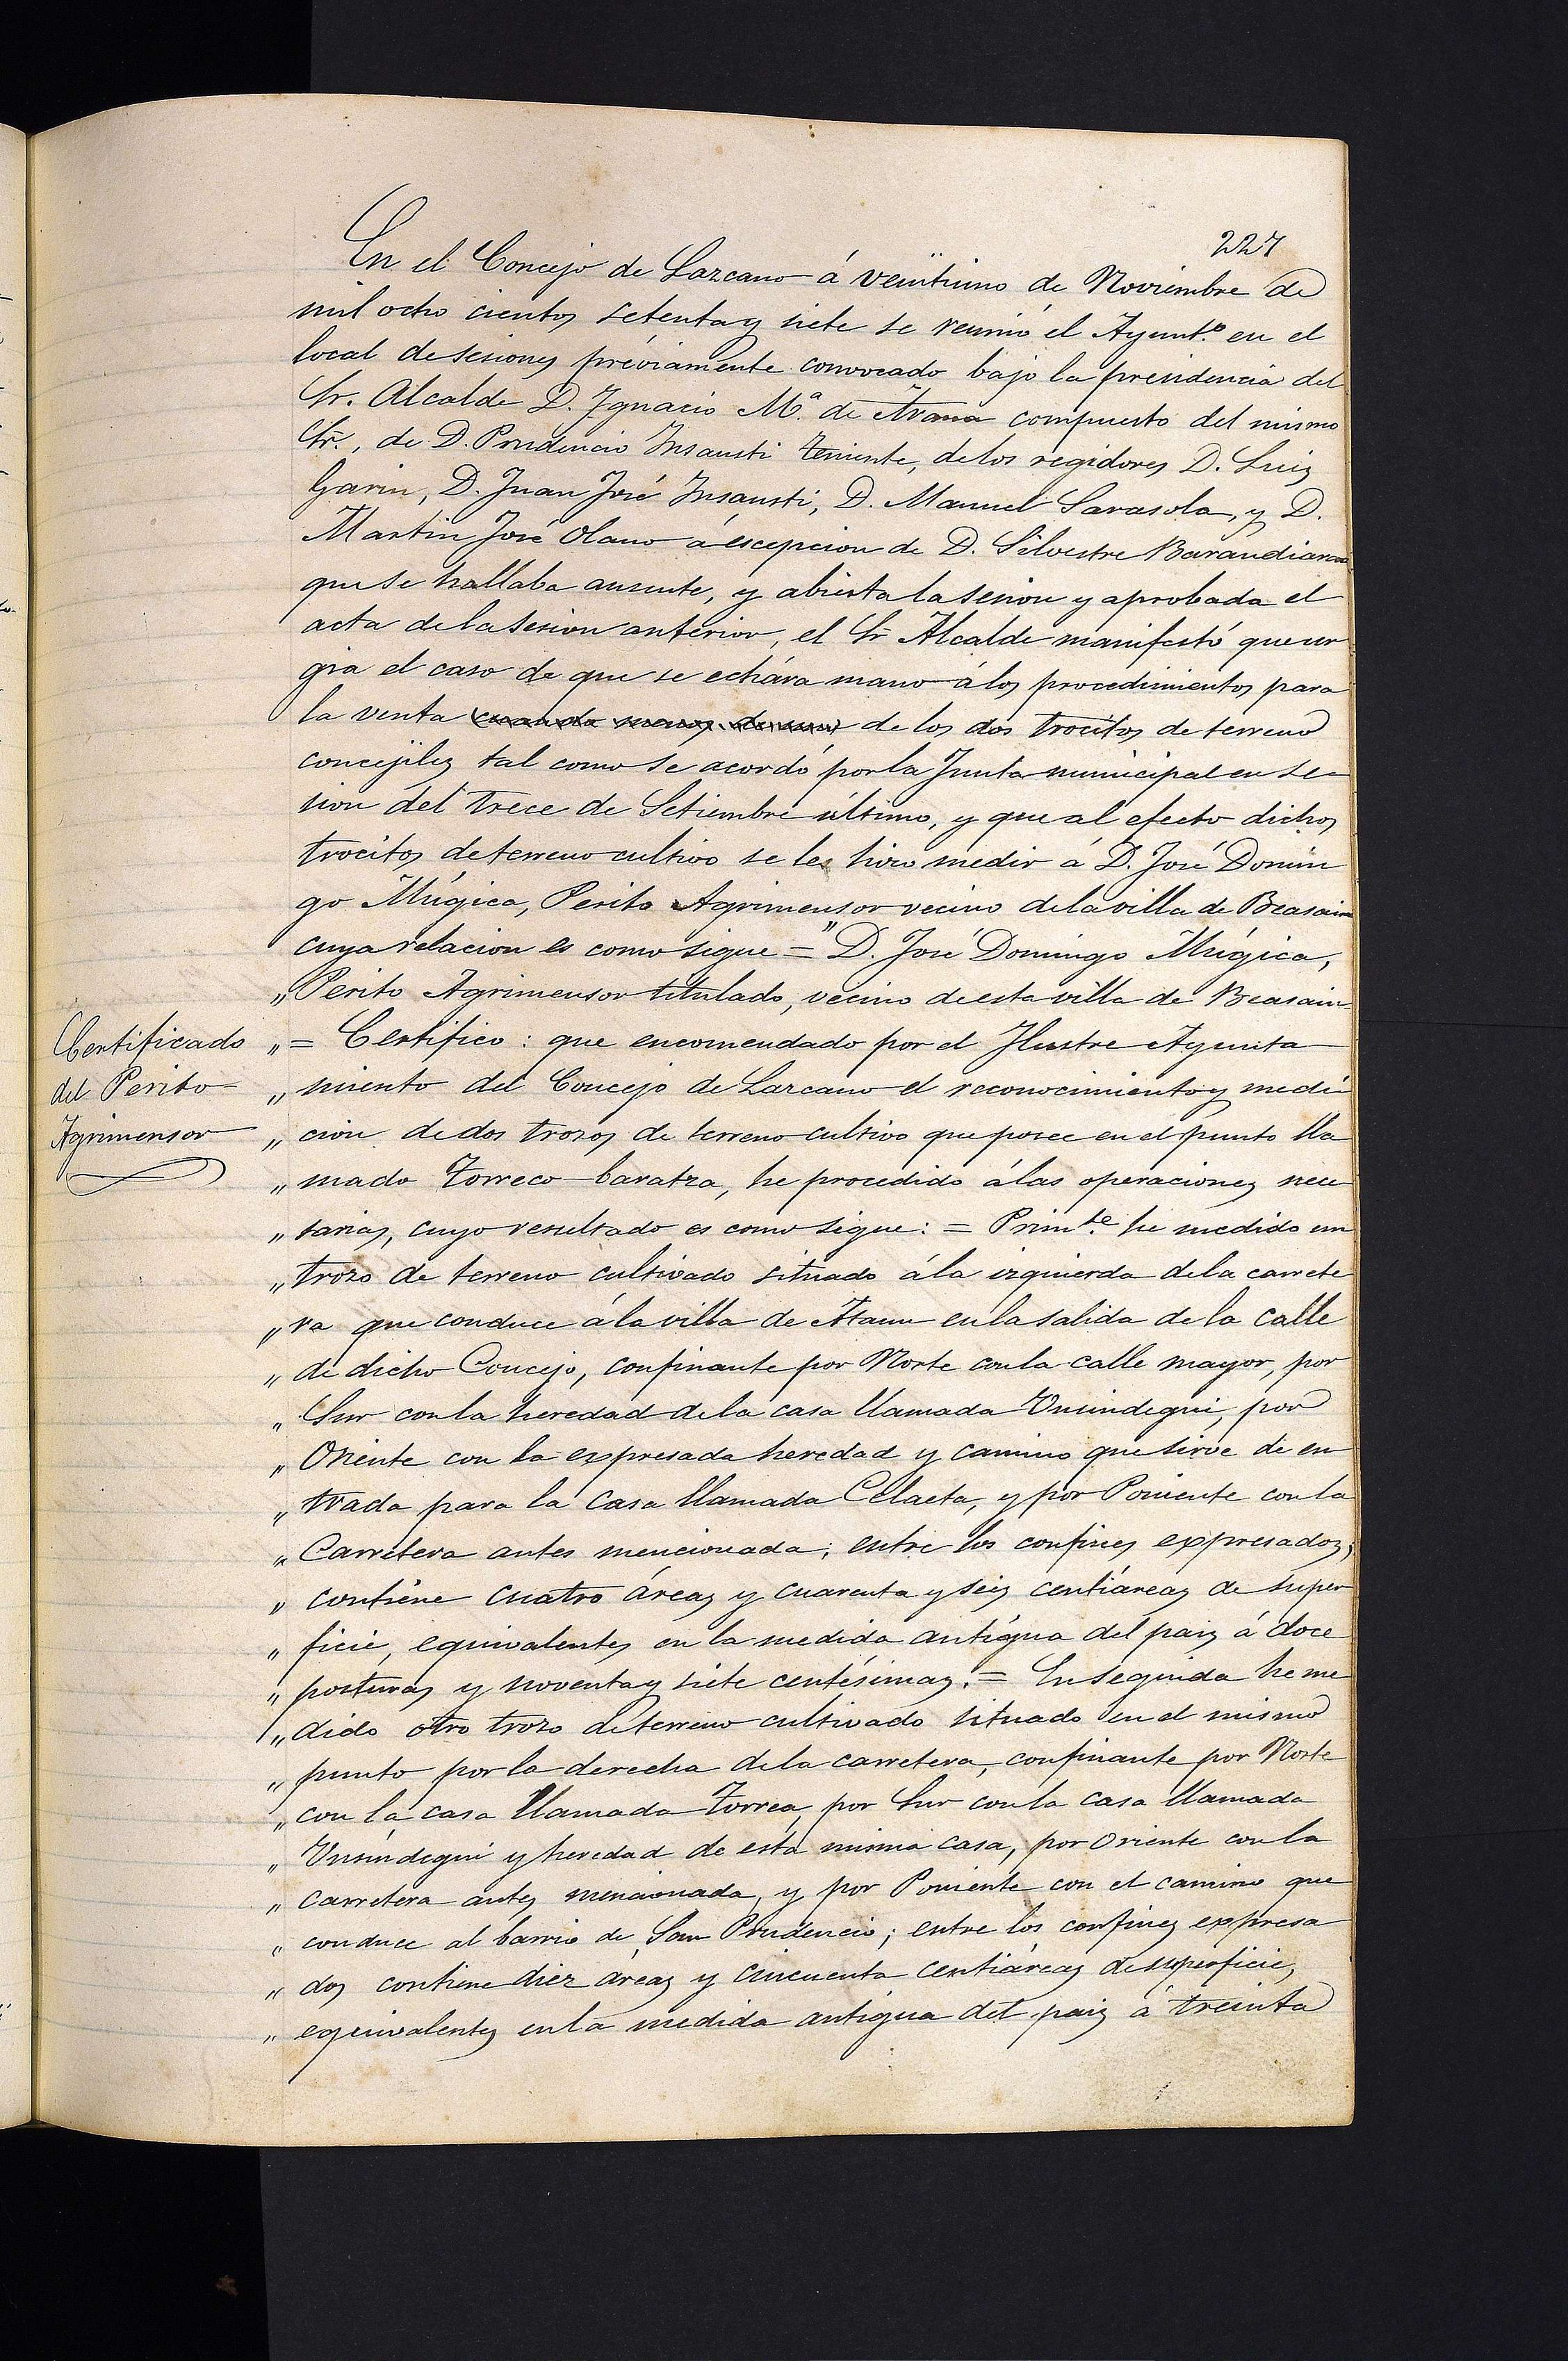 227
En el Concejo de Lazcano á veintiuno de Noviembre de
mil ocho cientos setenta y siete se reunió el Ayunt.º en el
local de sesiones préviamente convocado bajo la presidencia del
Sr. Alcalde D. Ignacio M.ª de Arana compuesto del mismo
Sr., de D. Prudencio Insausti teniente, de los regidores D. Luis
Garin, D. Juan José Insausti, D. Manuel Sarasola, y D.
Martin José Olano á escepcion de D. Silvestre Barandiaran
que se hallaba ausente, y abierta la sesion y aprobada el
acta de la sesion anterior, el Sr Alcalde manifestó que ur
gia el caso de que se echára mano á los procedimientos para
la venta de los dos trocitos de terreno
concejiles tal como se acordó por la Junta municipal en se
sion del trece de Setiembre último, y que al efecto dichos
trocitos de terreno cultivo se les hizo medir á D. José Domin
go Múgica, Perito Agrimensor vecino de la villa de Beasain
cuya relacion es como sigue = " D. José Domingo Múgica,
" Perito Agrimensor titulado, vecino de esta villa de Beasain
Certificado
del Perito
Agrimensor
" = Certifico: que encomendado por el Ilustre Ayunta
" miento del Concejo de Lazcano el reconocimiento y medi
" cion de dos trozos de terreno cultivo que posee en el punto lla
" mado Torreco-baratza, he procedido á las operaciones nece
" sarias, cuyo resultado es como sigue: = Prim.te he medido un
" trozo de terreno cultivado situado á la izquierda de la carrete
" ra que conduce á la villa de Ataun en la salida de la calle
" de dicho Concejo, confinante por Norte con la calle mayor, por
" Sur con la heredad de la casa llamada Usindegui, por
" Oriente con la expresada heredad y camino que sirve de en
" trada para la casa llamada Celaeta, y por Poniente con la
" Carretera antes mencionada; entre los confines expresados,
" contiene cuatro áreas y cuarenta y seis centiáreas de super
" ficie, equivalentes en la medida antígua del pais á doce
" posturas y noventa y siete centésimas. = En seguida he me
" dido otro trozo de terreno cultivado situado en el mismo
" punto por la derecha de la carretera, confinante por Norte
" con la casa llamada Torrea, por Sur con la casa llamada
" Usindegui y heredad de esta misma casa, por Oriente con la
" carretera antes mencionada, y por Poniente con el camino que
" conduce al barrio de San Prudencio; entre los confines expresa
" dos contiene diez áreas y cincuenta centiáreas de superficie,
" equivalentes en la medida antígua del pais á treinta